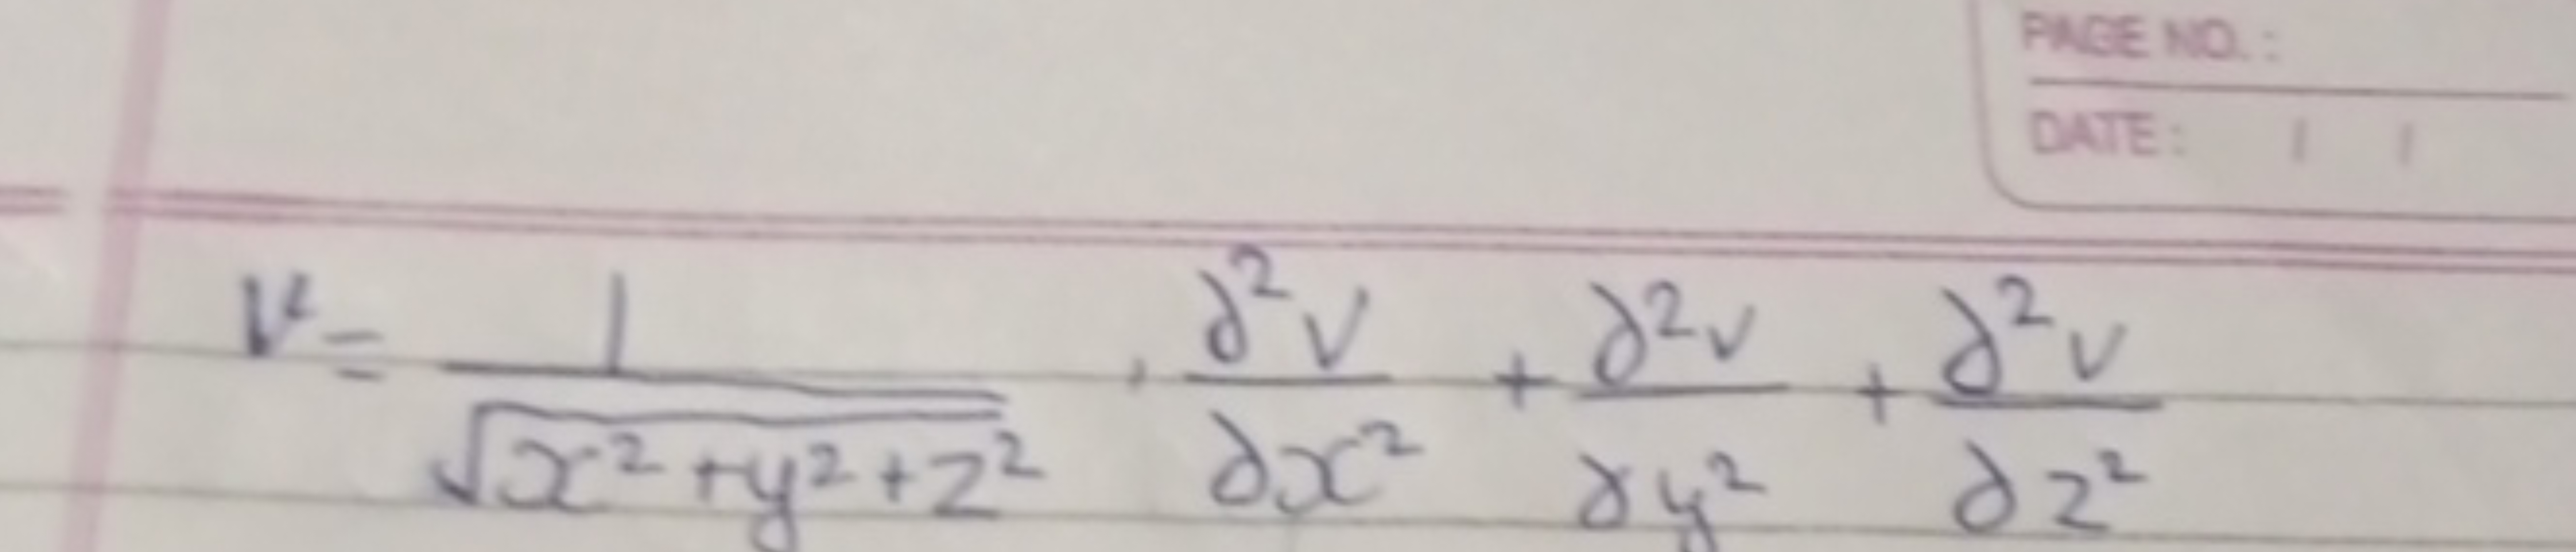 PAGE NO. :
DATE : / /
V = 1/√(x² + y² + z²) , ∂²v/∂x² + ∂²v/∂y² + ∂²v/∂z²